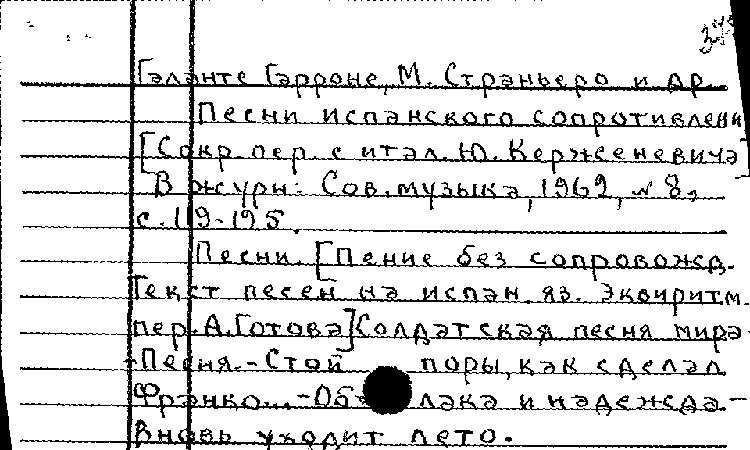 Галанте Гарроне, М. Страньеро и др.
Песни испанского сопротивлени
[Сокр. пер. с итал. Ю. Керженевича]
В журн: Сов. музыка, 1962, № 8,
с. 119-195.
Песни. [Пение без сопровожд.
Текст песен на испан. яз. Эквиритм.
пер. А. Готова] Солдатская песня мира-
Песня.-Стой поры, как сделал
Франко...-Об лака и надежда.-
Вновь уходит лето.